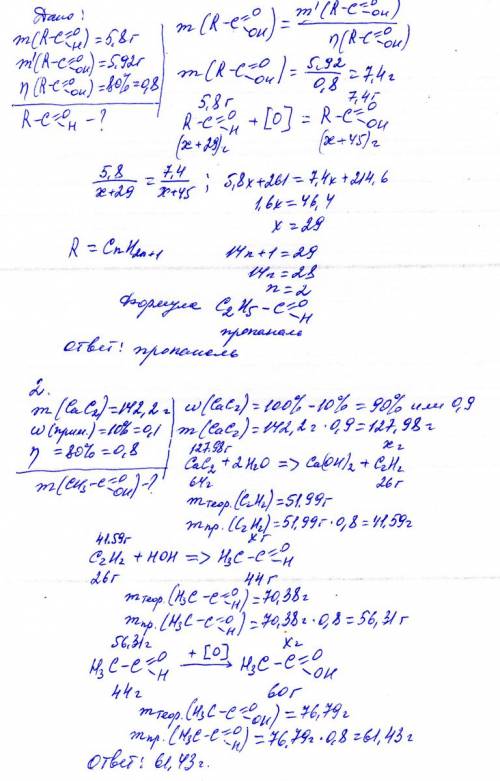 Дано:
m(R-C=O H)=5,8г
m'(R-C=O OH)=5,92г
η(R-C=O OH)=80%=0,8
R-C=O H -?
m(R-C=O OH)=m'(R-C=O OH)/η(R-C=O OH)
m(R-C=O OH)=5,92/0,8=7,4г
5,8г 7,4г
R-C=O H + [O] = R-C=O OH
(x+29)г (x+45)г
5,8/x+29 = 7,4/x+45 ; 5,8x+261=7,4x+214,6
1,6x=46,4
x=29
R=CnH2n+1 14n+1=29
14n=28
n=2
Формула C2H5-C=O H
пропаналь
Ответ: пропаналь
2.
m(CaC2)=142,2г
w(прим.)=10%=0,1
η=80%=0,8
m(CH3-C=O OH)-?
w(CaC2)=100%-10%=90% или 0,9
m(CaC2)=142,2г·0,9=127,98г
127,98г xг
CaC2+2H2O=>Ca(OH)2+C2H2
64г 26г
mтеор.(C2H2)=51,99г
mпр.(C2H2)=51,99г·0,8=41,59г
41,59г xг
C2H2+HOH=>H3C-C=O H
26г 44г
mтеор.(H3C-C=O H)=70,38г
mпр.(H3C-C=O H)=70,38г·0,8=56,31г
56,31г xг
H3C-C=O H +[O] → H3C-C=O OH
44г 60г
mтеор.(H3C-C=O OH)=76,79г
mпр.(H3C-C=O OH)=76,79г·0,8=61,43г
Ответ: 61,43г.